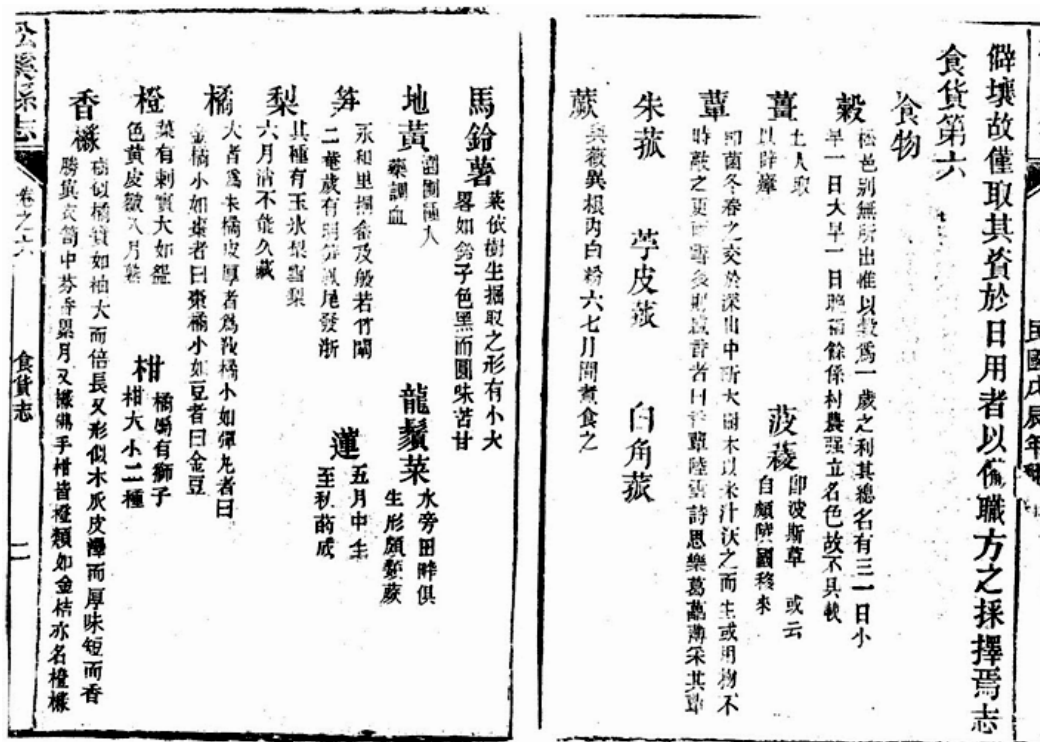 民國戊辰年
僻壤故僅取其資於日用者以備職方之採擇焉志
食貨第六
食物
穀
松邑别無所出惟以穀爲一歲之利其總名有三一曰小
早一曰大早一曰晚稻餘係村農强立名色故不具載
薑
土人取
以辟瘴
菠薐
卽波斯草 或云
自頗陵國移來
蕈
卽菌冬春之交於深山中斫大樹木以米汁沃之而生或用物不
時敲之更雨雪多則盛香者曰香蕈陸雲詩思樂葛藟薄采其蕈
朱菰 苧皮菰 白角菰
蕨
與薇異根内白粉六七月間煮食之
馬鈴薯
葉依樹生掘取之形有小大
畧如鈴子色黑而圓味苦甘
地黃
園種入
藥調血
龍鬚菜
水旁田畔俱
生形頗類蕨
笋
永和里掘及般若竹闌
二菴歲有笋鳳尾發浙
蓮
五月中生
至秋萌成
梨
其種有玉氷梨雪梨
六月淸不能久藏
橘
大者爲朱橘皮厚者爲殼橘小如彈丸者曰
金橘小如棗者曰棗橘小如豆者曰金豆
橙
葉有刺實大如盌
色黃皮皺八月熟
柑
橘屬有獅子
柑大小二種
香櫞
樹似橘實如柚大而倍長又形似木瓜皮澤而厚味短而香
勝寘衣笥中芬香累月又手柑皆橙類如金桔亦名橙櫞
松溪縣志 卷之六 食貨志 二